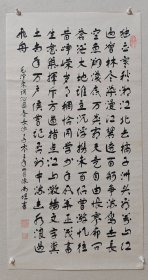 独立寒秋湘江北去橘子洲头看万山红
遍层林尽染漫江碧透百舸争流鹰击长
空鱼翔浅底万类霜天竞自由怅寥廓问
苍茫大地谁主沉浮携来百侣曾游忆往
昔峥嵘岁月稠恰同学少年风华正茂书
生意气挥斥方遒指点江山激扬文字粪
土当年万户侯曾记否到中流击水浪遏
飞舟 毛泽东词沁园春长沙